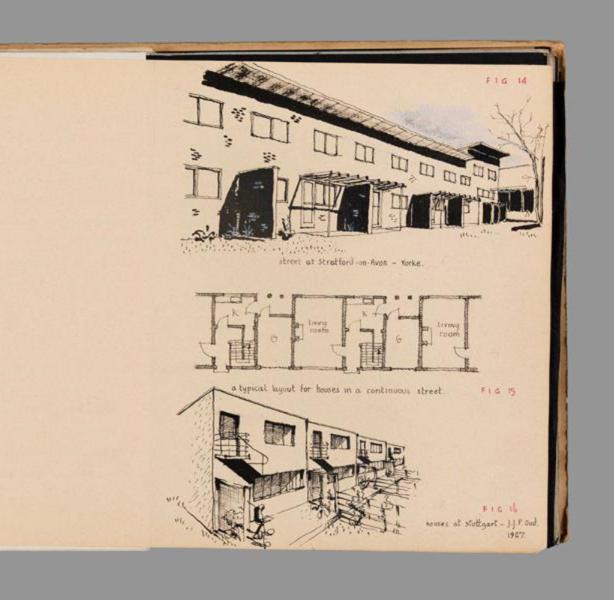 FIG 14
street at Stratford-on-Avon – Yorke.
K
Living
room
G
K
G
Living
room
a typical layout for houses in a continuous street.
FIG 15
FIG 16
houses at Stuttgart – J.J.P. Oud.
1927.